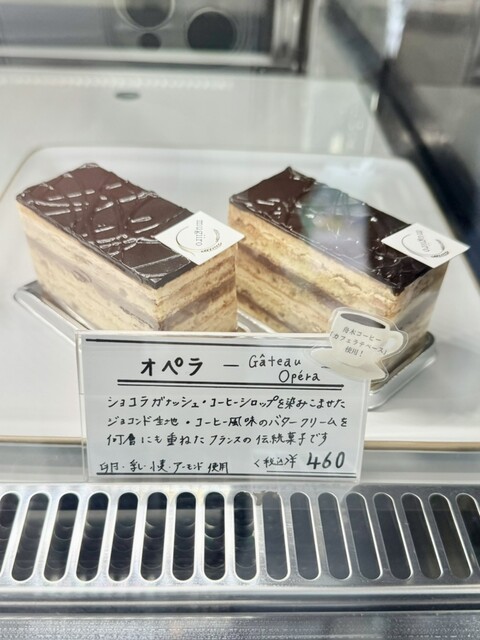 mugiiro
mugiiro
オペラ — Gâteau
Opéra
ショコラガナッシュ・コーヒーシロップを染みこませた
ジョコンド生地・コーヒー風味のバタークリームを
何層にも重ねたフランスの伝統菓子です
卵・乳・小麦・アーモンド使用
<税込>¥460
コーヒー
「カフェラテベース」
使用！